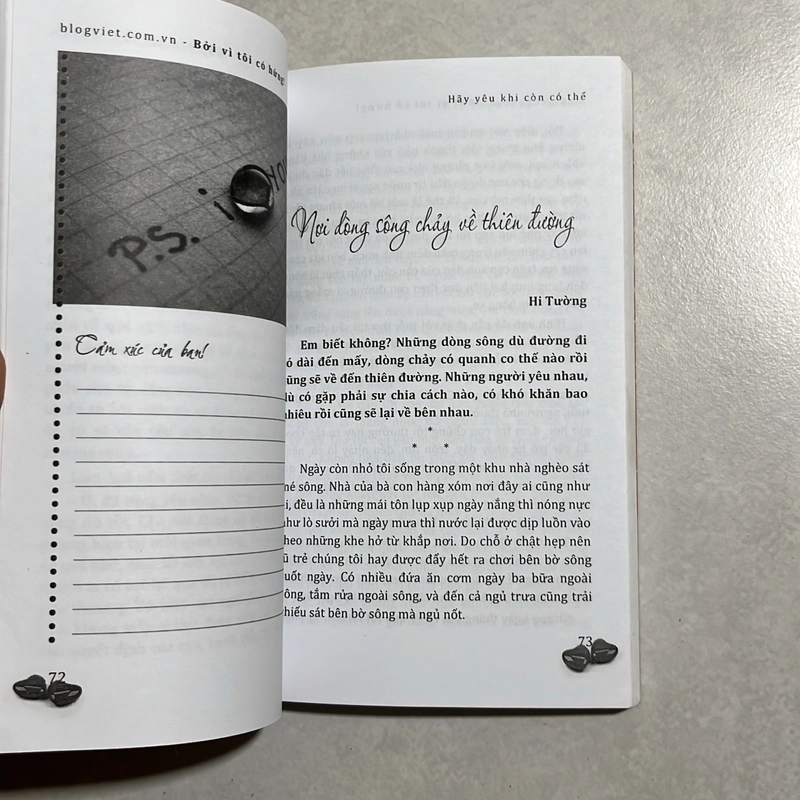 blogviet.com.vn - Bởi vì tôi có hứng!
P.S. i YOU
Cảm xúc của bạn!
72
Hãy yêu khi còn có thể
Nơi dòng sông chảy về thiên đường
Hi Tường
Em biết không? Những dòng sông dù đường đi
ó dài đến mấy, dòng chảy có quanh co thế nào rồi
ũng sẽ về đến thiên đường. Những người yêu nhau,
ù có gặp phải sự chia cách nào, có khó khăn bao
hiêu rồi cũng sẽ lại về bên nhau.
*
* *
Ngày còn nhỏ tôi sống trong một khu nhà nghèo sát
é sông. Nhà của bà con hàng xóm nơi đây ai cũng như
i, đều là những mái tôn lụp xụp ngày nắng thì nóng nực
hư lò sưởi mà ngày mưa thì nước lại được dịp luồn vào
heo những khe hở từ khắp nơi. Do chỗ ở chật hẹp nên
ũ trẻ chúng tôi hay được đẩy hết ra chơi bên bờ sông
uốt ngày. Có nhiều đứa ăn cơm ngày ba bữa ngoài
ông, tắm rửa ngoài sông, và đến cả ngủ trưa cũng trải
hiếu sát bên bờ sông mà ngủ nốt.
73